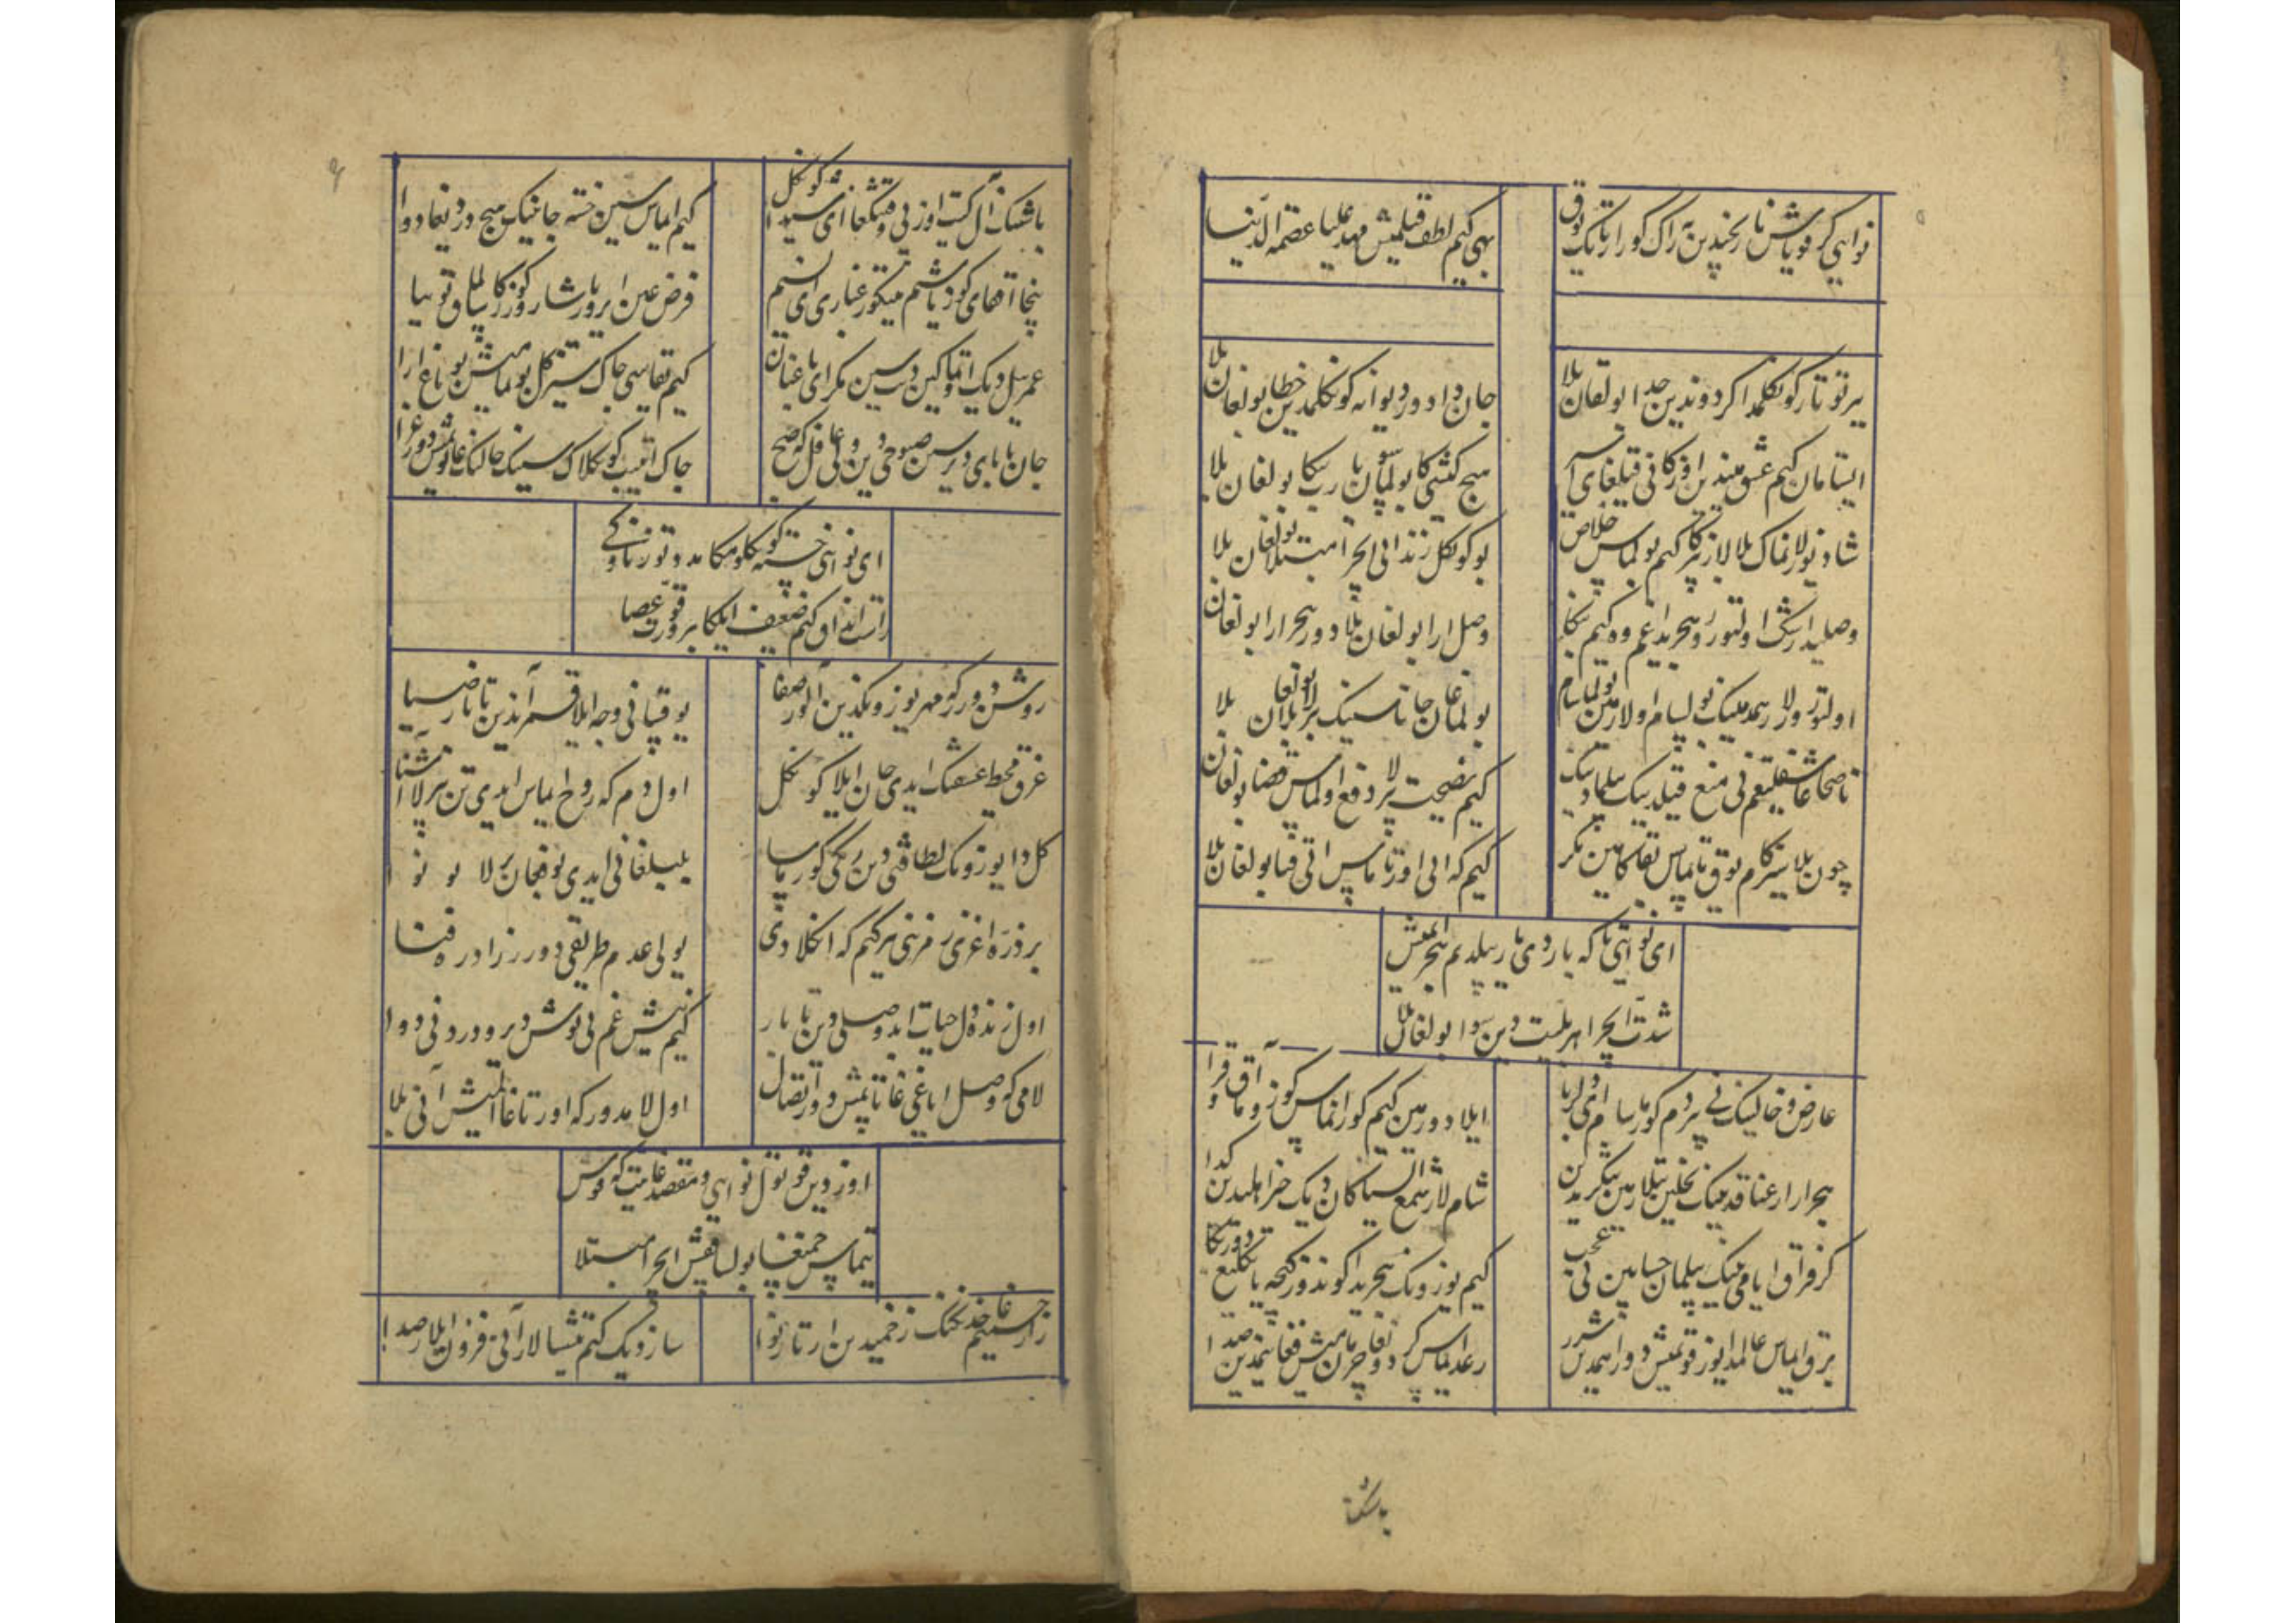 نوایی گر قویاش نارنجیدین راک کورار تانک یوق
بهی کیم لطف قیلمیش مهد علیا عصمة الدنیا
یر توتار کونکلمدا کردوندین جدا بولغان بلا
جان دادور دیوانه کونکلمدین خطا بولغان بلا
ایستامان کیم عشق میندین اوزکانی قیلغای اسیر
هیچ کشیکا بولماسون یا رب بنکا بولغان بلا
شاد بولانماک بلالاردین کیم بولماس خلاص
بو کونکل زندانی ایچرا مبتلا بولغان بلا
وصلیدا رشک اولتورور هجریدا غم وه کیم منکا
وصل ارا بولغان بلادور هجر ارا بولغان بلا
اولتورورلار همدمینک بولسام اولارمین بولماسام
بولماغان جانا سینینک برلا بولغان بلا
ناصحا عاشقلیغیم نی منع قیلدینک بیلمادینک
کیم نصیحت برلا دفع اولماس قضا بولغان بلا
چون بلا سیزکارم یوق تاپماس بقا کامین مکر
کیم که انی اورتاماس اتی فنا بولغان بلا
ای نوایی تا که یار دی یار بیلدیم هجر ایمیش
شدت ایچرا هر بلیت دین سوا بولغان بلا
عارض و خالینک نی بیر دم کورماسام ای دلربا
ایلادورمین کیم کورانماس کوزوما آق و قرا
هجر ارا رعنا قدینک نخلین تیلارمین ییغلابین
شام لار شمع ایستاکان دیک خرامیدین کدا
کر فراق ایامی نینک بیلمان حسابین نی عجب
کیم یوزونک هجریدا کوندوز کیچه یانکلیغ دور منکا
برق ایماس عالمدا یوز قویمیش دور اهیمدین شرر
رعد ایماس کردونغا چرمانمیش فغانیمدین صدا
باشینک
باشینک آل کیت اوزنی قیتیغا ای شیدا کونکل
کیم ایماس سین خسته جانینک هیچ دردیغا دوا
نیچا اقغای کوز یاشیم نیتکور غباری ای نسیم
فرض عین ایرور یاشارور کوزکا سالماق توتیا
عمر سیل دیک اوتماکین دیب سین مکر ای باغبان
کیم تقاسی چاک سیز کل بولمامیش بو باغ ارا
جان تاپای دیرسین صبوحی دین ولی غافل که صبح
چاک ایتیب کونکلاک سینینک حالینکغا توتمیش دور عزا
ای نوایی خسته کونکلومکا مدد تور ناوکی
راست انداق کیم ضعیف ایلکا بیرور قوت عصا
روشن دور کر مهر یوزونکدین آلور صفا
یوقسا نی وجه ایلا قمر آندین تاپار ضیا
غرق محیط عشقینک ایدی جان ایلا کونکل
اول دم که روح ایماس ایدی تن بیرلا آشنا
کل دا یوزونک لطافتی دین رنکی کورماسا
بلبلغا نی ایدی بو فغان بیرلا بو نوا
بر ذره اغزی رمزنی هر کیم که انکلادی
یولی عدم طریقی دور زاد ره فنا
اول زنده دل حیات ابد وصلی دین تاپار
کیم نیش غم نی نوش دیر و دردنی دوا
لامی که وصل ایاغیغا تاپمیش دور اتصال
اول لا مدور که اورتاغا المیش آنی بلا
اوزدین قوتول نوایی و مقصدغا ییت که قوش
ییتماس چمنغا بولسا قفس ایچرا مبتلا
زار جسمیم غا خدنکینک زخمیدین ارتار نوا
سازدیک کیم تیشسالار آنی فزون ایلار صدا